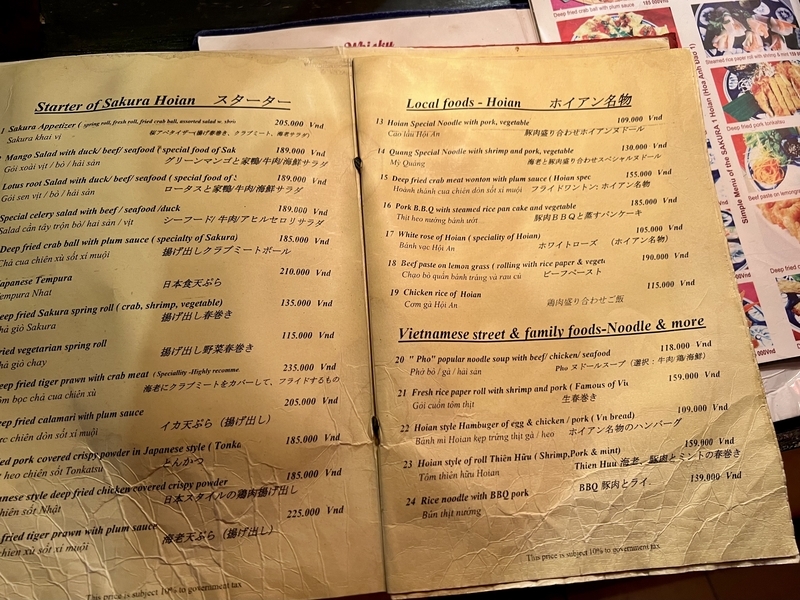 Whisky
Starter of Sakura Hoian スターター
1 Sakura Appetizer ( spring roll, fresh roll, fried crab ball, assorted salad w. 205.000 Vnd
Sakura khai vị 桜アペタイザー(揚げ春巻き、クラブミート、海老サラダ)
Mango Salad with duck/ beef/ seafood ( special food of Sak 189.000 Vnd
Gỏi xoài vịt / bò / hải sản グリーンマンゴと家鴨/牛肉/海鮮サラダ
Lotus root Salad with duck/ beef/ seafood ( special food of S 189.000 Vnd
Gỏi sen vịt / bò / hải sản ロータスと家鴨/牛肉/海鮮サラダ
Special celery salad with beef / seafood /duck 189.000 Vnd
Salad cần tây trộn bò/ hải sản / vịt シーフード/ 牛肉/アヒルセロリサラダ
Deep fried crab ball with plum sauce ( specialty of Sakura) 185.000 Vnd
Chả cua chiên xù sốt xí muội 揚げ出しクラブミートボール
Japanese Tempura 210.000 Vnd
Tempura Nhat 日本食天ぷら
Deep fried Sakura spring roll ( crab, shrimp, vegetable) 135.000 Vnd
hả giò Sakura 揚げ出し春巻き
ried vegetarian spring roll 115.000 Vnd
hả giò chay 揚げ出し野菜春巻き
eep fried tiger prawn with crab meat ( Speciality -Highly recomme. 235.000 Vnd
m bọc chả cua chiên xù 海老にクラブミートをカバーして、フライドするもの
ep fried calamari with plum sauce 205.000 Vnd
ực chiên dòn sốt xí muội イカ天ぷら（揚げ出し）
ied pork covered crispy powder in Japanese style ( Tonka 185.000 Vnd
t heo chiên sốt Tonkatsu とんかつ
anese style deep fried chicken covered crispy powder 185.000 Vnd
hiên sốt Nhật 日本スタイルの鶏肉揚げ出し
fried tiger prawn with plum sauce 225.000 Vnd
chiên xù sốt xí muội 海老天ぷら（揚げ出し）
This price is subject 10% to government tax
Local foods - Hoian ホイアン名物
13 Hoian Special Noodle with pork, vegetable 109.000 Vnd
Cao lầu Hội An 豚肉盛り合わせホイアンヌードル
14 Quang Special Noodle with shrimp and pork, vegetable 130.000 Vnd
Mỳ Quảng 海老と豚肉盛り合わせスペシャルヌードル
15 Deep fried crab meat wonton with plum sauce ( Hoian spec 155.000 Vnd
Hoành thánh cua chiên dòn sốt xí muội フライドワントン: ホイアン名物
16 Pork B.B.Q with steamed rice pan cake and vegetable 185.000 Vnd
Thịt heo nướng bánh ướt 豚肉ＢＢＱと蒸すパンケーキ
17 White rose of Hoian ( speciality of Hoian) 105.000 Vnd
Bánh vạc Hội An ホワイトローズ （ホイアン名物）
18 Beef paste on lemon grass ( rolling with rice paper & veget 190.000 Vnd
Chạo bò quấn bánh tráng và rau củ ビーフペースト
19 Chicken rice of Hoian 115.000 Vnd
Cơm gà Hội An 鶏肉盛り合わせご飯
Vietnamese street & family foods-Noodle & more
20 "Pho" popular noodle soup with beef/ chicken/ seafood 118.000 Vnd
Phở bò / gà / hải sản Pho ヌードルスープ（選択：牛肉/鶏/海鮮）
21 Fresh rice paper roll with shrimp and pork ( Famous of Vi 159.000 Vnd
Gỏi cuốn tôm thịt 生春巻き
22 Hoian style Hambuger of egg & chicken / pork ( Vn bread) 109.000 Vnd
Bánh mì Hoian kẹp trứng thịt gà / heo ホイアン名物のハンバーグ
23 Hoian style of roll Thiên Hữu ( Shrimp,Pork & mint) 159.000 Vnd
Tôm thiên hữu Hoian Thien Huu 海老、豚肉とミントの春巻き
24 Rice noodle with BBQ pork 139.000 Vnd
Bún thịt nướng BBQ 豚肉とライ
This price is subject 10% to government tax.
Deep fried crab ball with plum sauce 185 000Vnd
Steamed rice paper roll with shrimp & pork 159
Deep fried pork tonkatsu
Beef paste on lemongrass
Deep fried
Simple Menu of the SAKURA 1 Hoian (Hoa Anh Đào 1)